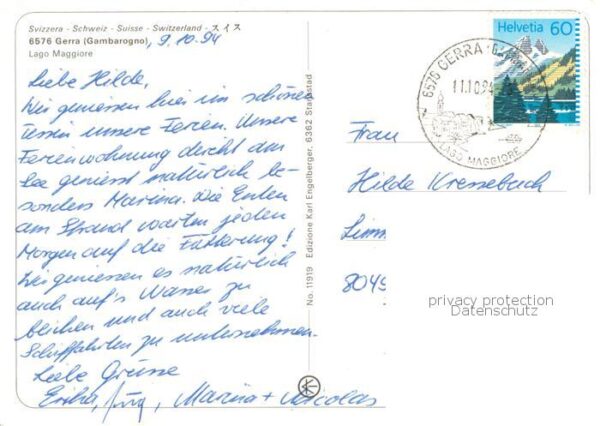 Svizzera - Schweiz - Suisse - Switzerland - スイス
6576 Gerra (Gambarogno), 9.10.94
Lago Maggiore
Liebe Hilde,
Wir geniessen hier im schönen
Tessin unsere Ferien. Unsere
Ferienwohnung direkt am
See geniesst natürlich be-
sonders Marina. Die Enten
am Strand warten jeden
Morgen auf die Fütterung!
Wir geniessen es natürlich
auch auf's Wasser zu
blicken und auch viele
Schiffahrten zu unternehmen.
Liebe Grüsse
Erika, Jürg, Marina + Nicolas
No. 11919 Edizione Karl Engelberger, 6362 Stansstad
Helvetia 60
6576 GERRA
11.10.94
LAGO MAGGIORE
Frau
Hilde Kressebuch
8049
privacy protection
Datenschutz